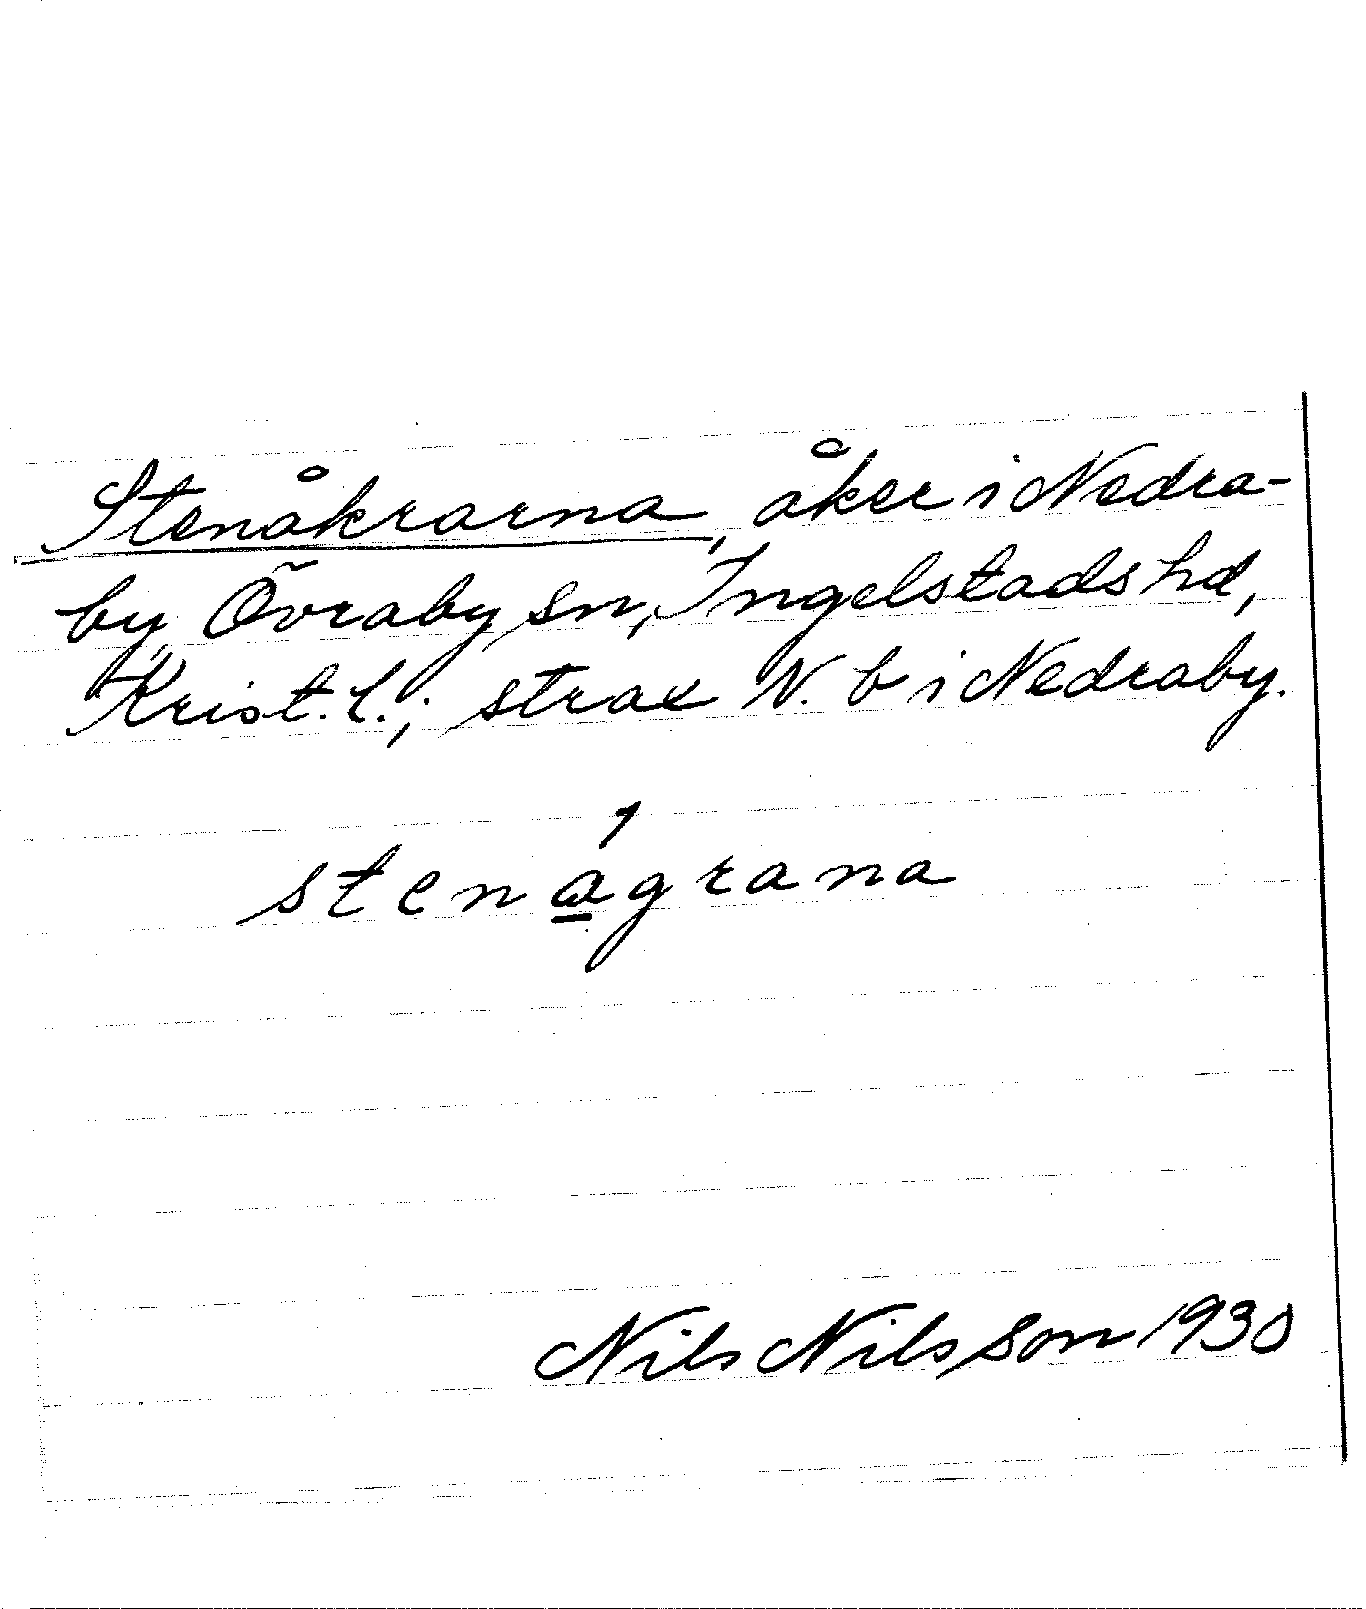 Stenåkrarna, åker i Nedra-
by, Övraby sn, Ingelstads hd,
Krist. l.; strax N. b i Nedraby.
stenågrana
Nils Nilsson 1930